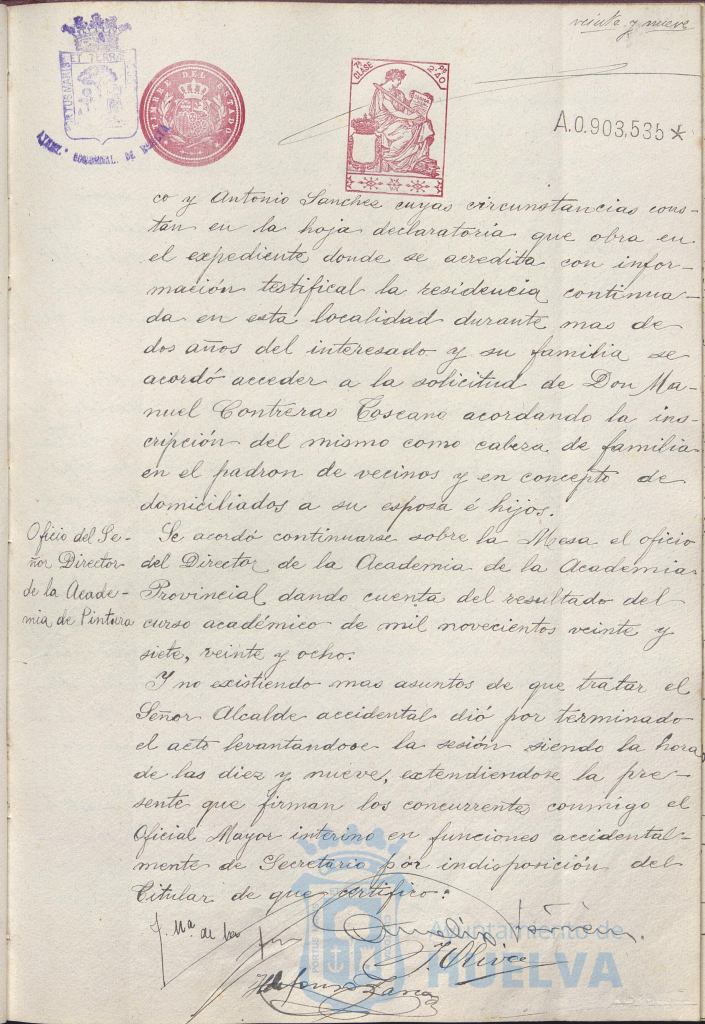 veinte y nueve
PORTUS MARIS ET TERRAE
TIMBRE DEL ESTADO
7ª CLASE
2'40
A.0.903,535*
co y Antonio Sanchez cuyas circunstancias cons-
tan en la hoja declaratoria que obra en
el expediente donde se acredita con infor-
mación testifical la residencia continua-
da en esta localidad durante mas de
dos años del interesado y su familia se
acordó acceder a la solicitud de Don Ma-
nuel Contreras Toscano acordando la ins-
cripción del mismo como cabeza de familia
en el padron de vecinos y en concepto de
domiciliados a su esposa é hijos.
Oficio del Se-
ñor Director
de la Acade-
mia de Pintura
Se acordó continuarse sobre la Mesa el oficio
del Director de la Academia de la Academia
Provincial dando cuenta del resultado del
curso académico de mil novecientos veinte y
siete, veinte y ocho.
Y no existiendo mas asuntos de que tratar el
Señor Alcalde accidental dió por terminado
el acto levantandose la sesión siendo la hora
de las diez y nueve, extendiendose la pre-
sente que firman los concurrentes conmigo el
Oficial Mayor interino en funciones accidental-
mente de Secretario por indisposición del
Titular de que certifico:
J. Mª de los
J. Oliva
Ildefonso
Ayuntamiento de
HUELVA